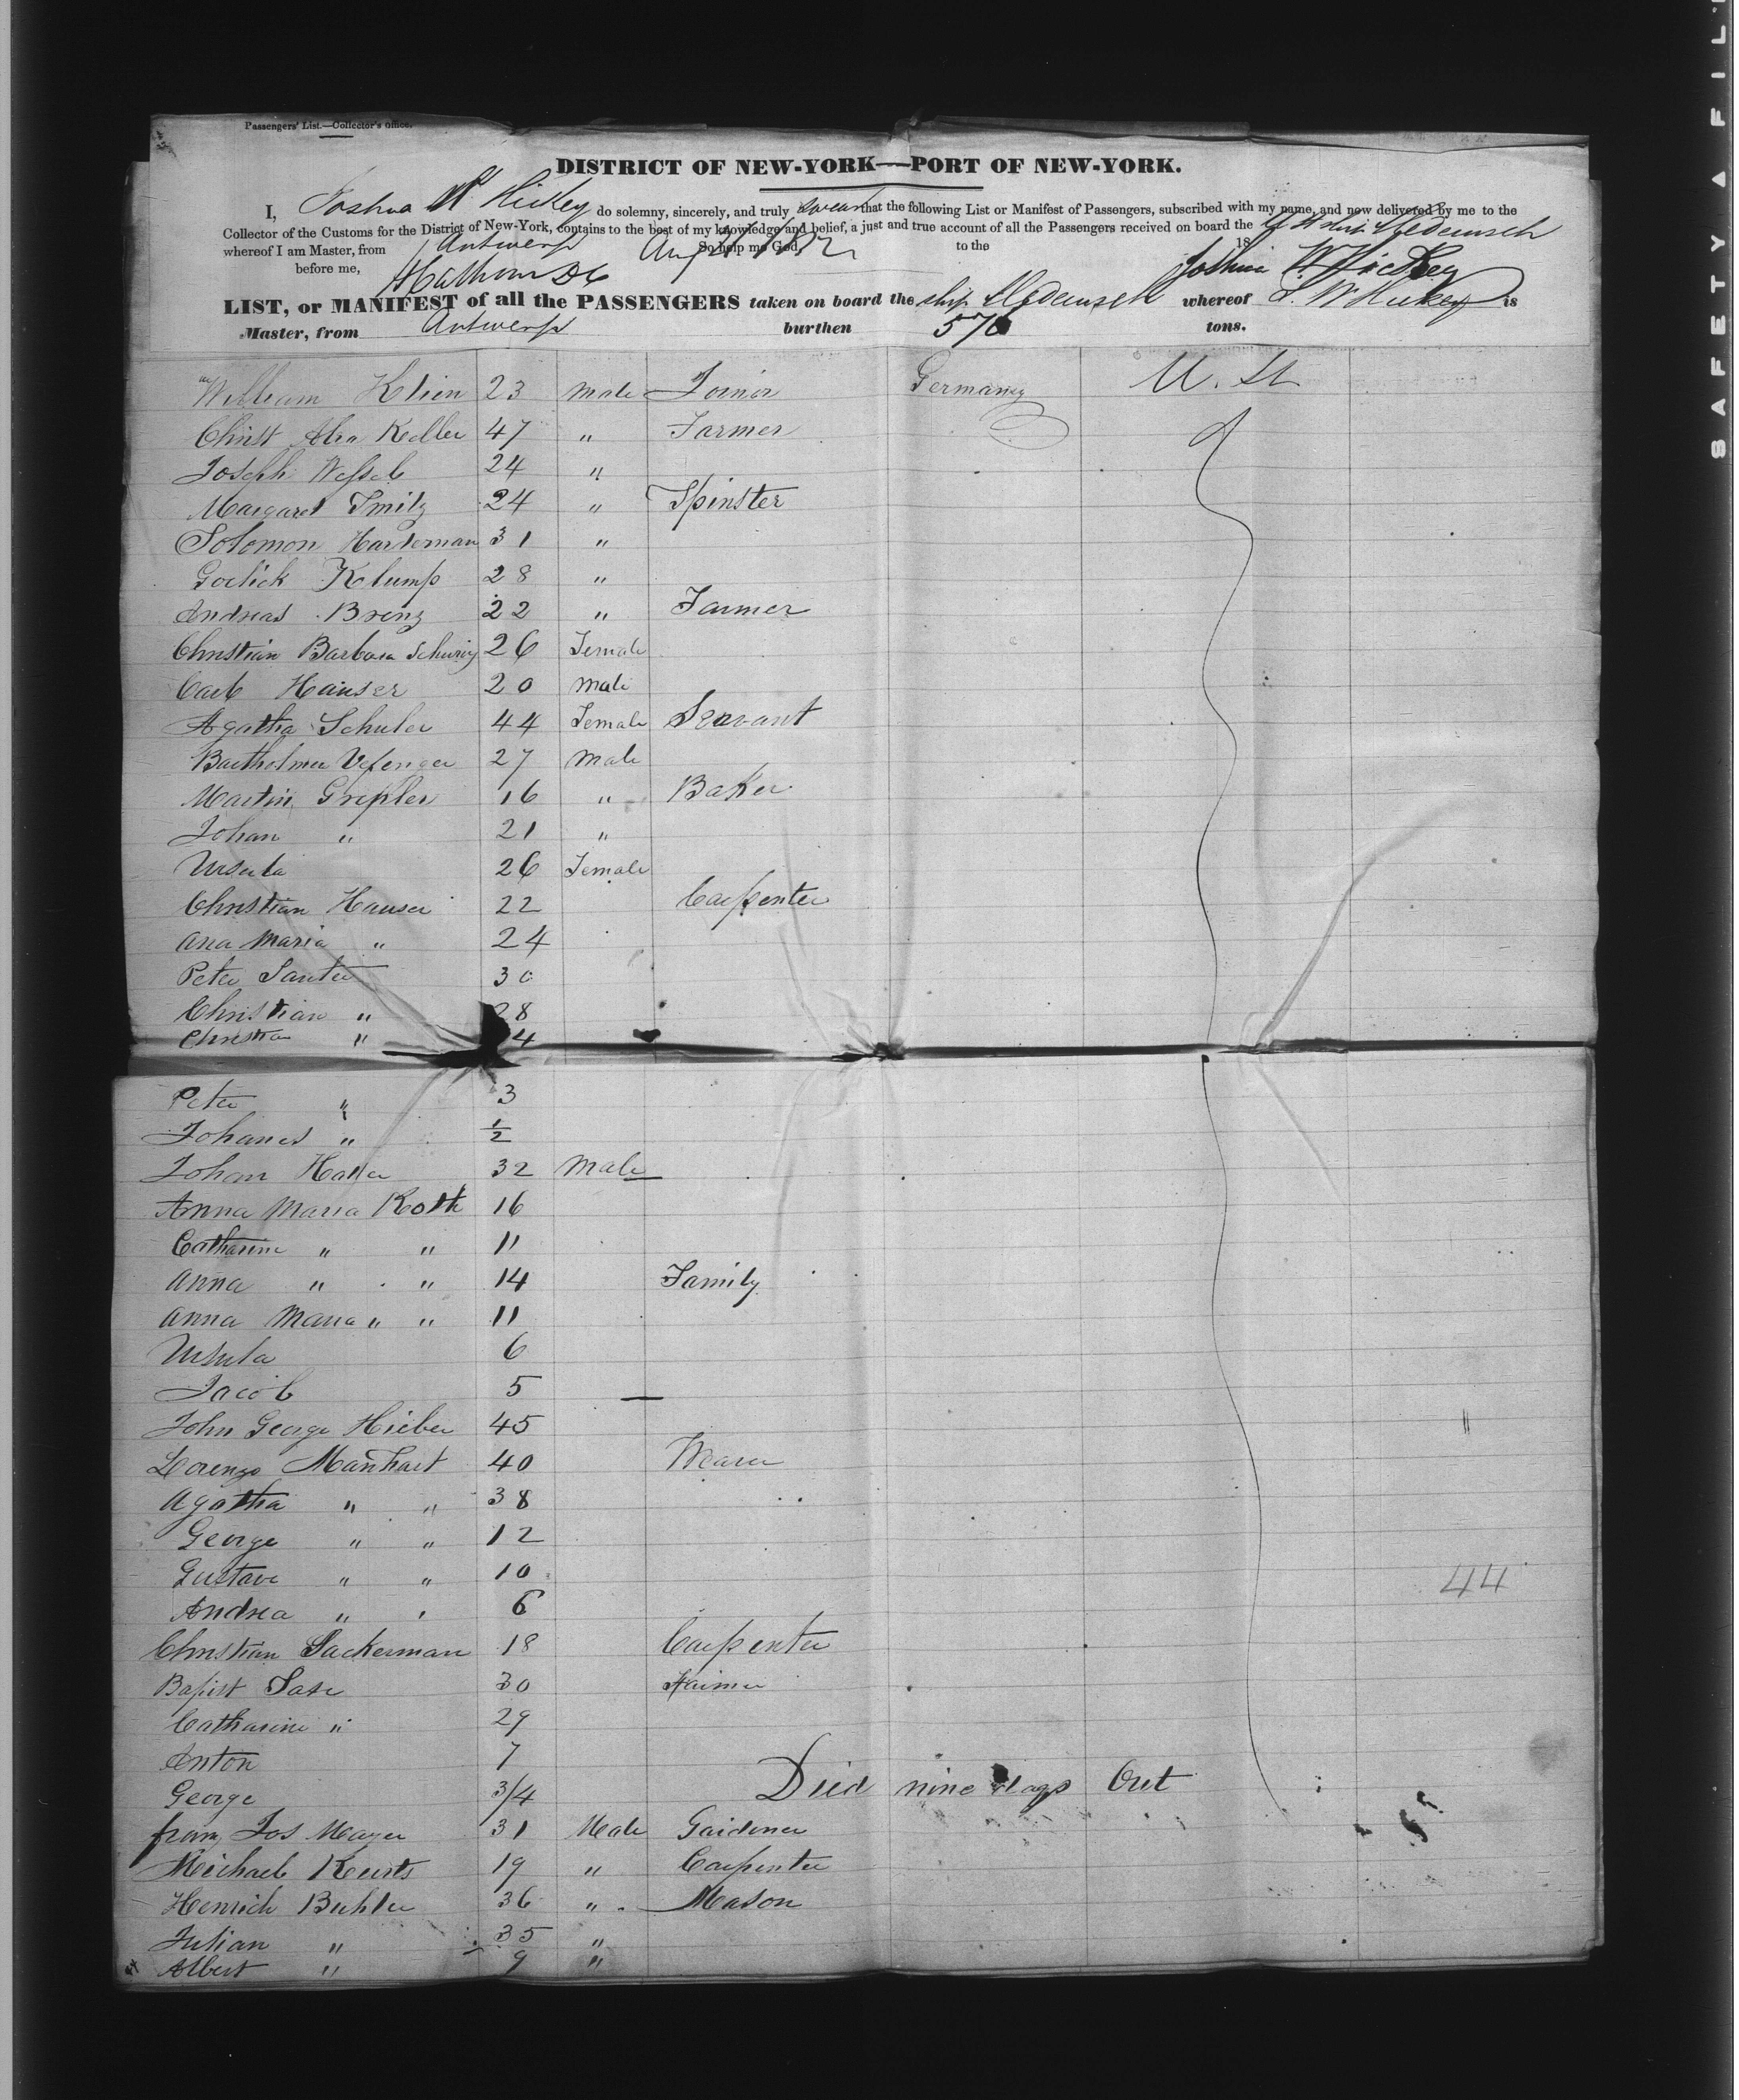 SAFETY A FIL
Passengers' List.—Collector's office.
DISTRICT OF NEW-YORK—PORT OF NEW-YORK.
I, Joshua W Hickey do solemny, sincerely, and truly swear that the following List or Manifest of Passengers, subscribed with my name, and now delivered by me to the
Collector of the Customs for the District of New-York, contains to the best of my knowledge and belief, a just and true account of all the Passengers received on board the ship
whereof I am Master, from Antwerp So help me God. to the 18
before me, Aug
Joshua W Hickey
LIST, or MANIFEST of all the PASSENGERS taken on board the ship whereof J. W Hickey is
Master, from Antwerp burthen 576 tons.
William Klien 23 male Joiner Germany U. St
Christ Keller 47 " Farmer
Joseph Wessel 24 "
Margaret Smitz 24 " Spinster
Solomon Harteman 31 "
Klump 28 "
Andreas Brenz 22 " Farmer
Christian Barbara 26 Female
Carl Hauser 20 male
Agatha Schuler 44 Female Servant
27 male
Martin 16 " Baker
Johan " 21 "
Ursula 26 Female
Christian Hauser 22 Carpenter
Ana Maria " 24
Peter Santer 30
Christian " 28
Christian " 4
Peter " 3
Johanes " 1/2
Johan 32 Male
Anna Maria Roth 16
Catharine " " 11
Anna " " 14 Family
Anna Maria " " 11
Ursula 6
Jacob 5
John George Hieber 45
Lorenzo Manhart 40
Agatha " " 38
George " " 12
Gustave " " 10 44
Andrea " " 6
Christian Sackerman 18 Carpenter
Bapist 30 Farmer
Catharine " 29
Anton 7
George 3/4 Died nine days Out
Jos Mayer 31 Male Gardener
Michael 19 " Carpenter
Henrich Buhler 36 " Mason
Julian " 35 "
Albert " 9 "